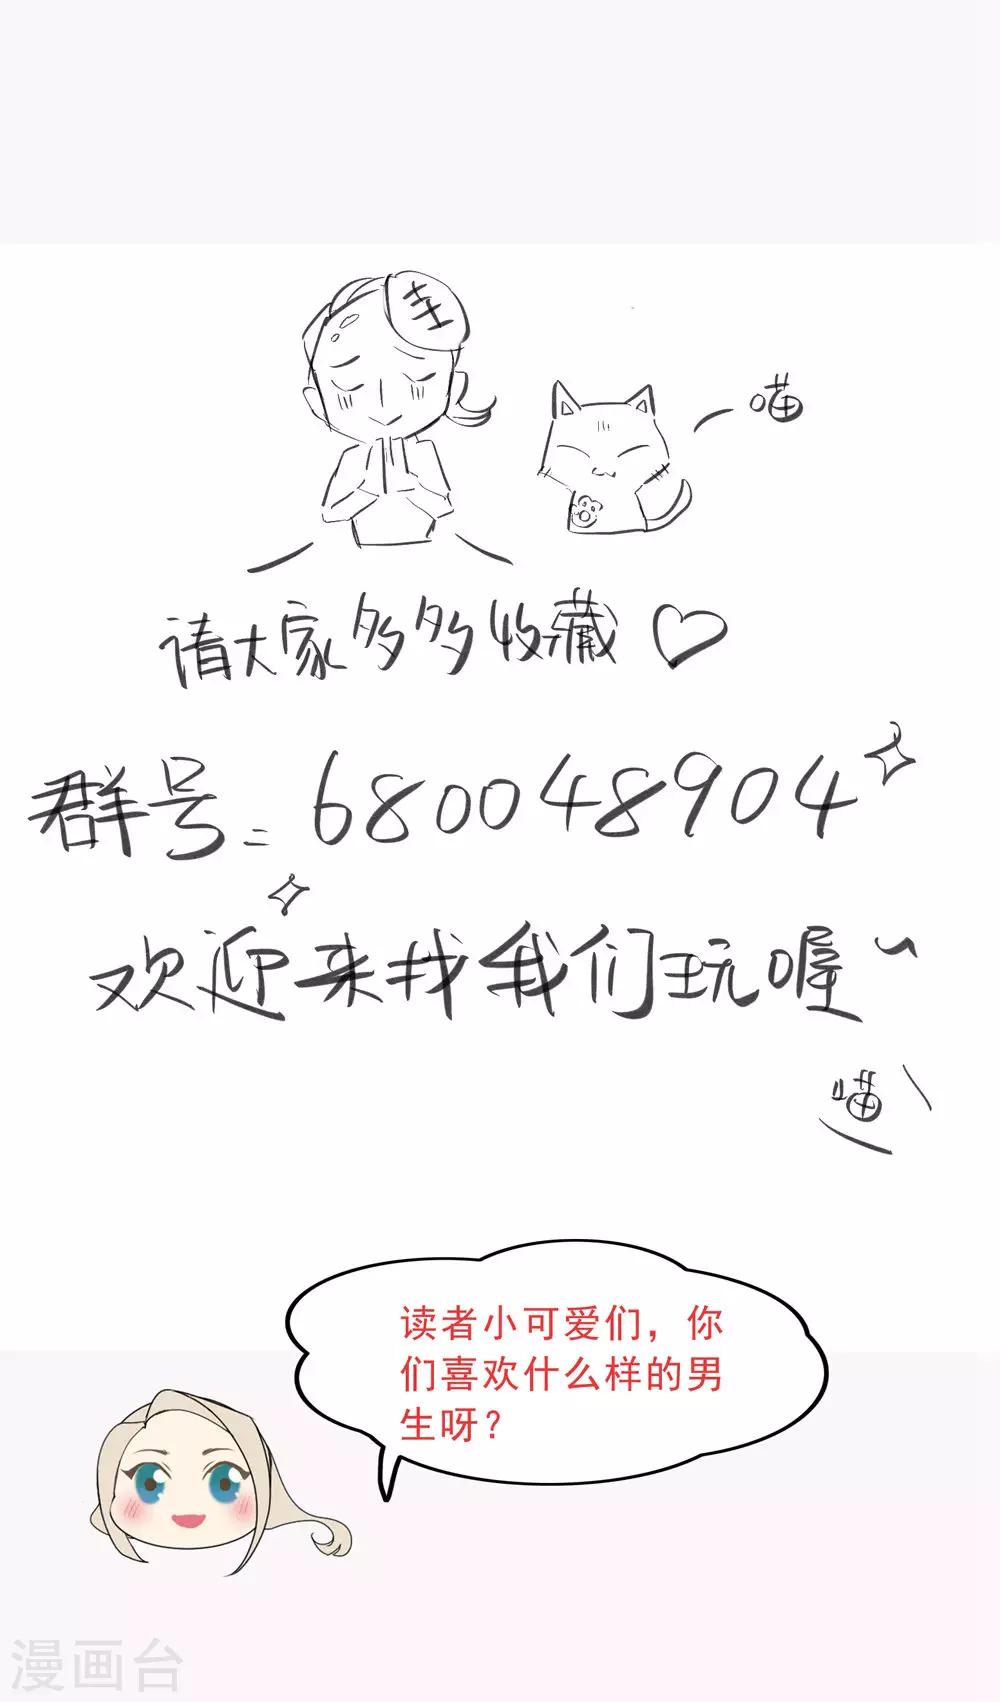 圭
喵
请大家多多收藏♡
群号：680048904
欢迎来找我们玩喔~
喵
读者小可爱们，你
们喜欢什么样的男
生呀？
漫画台